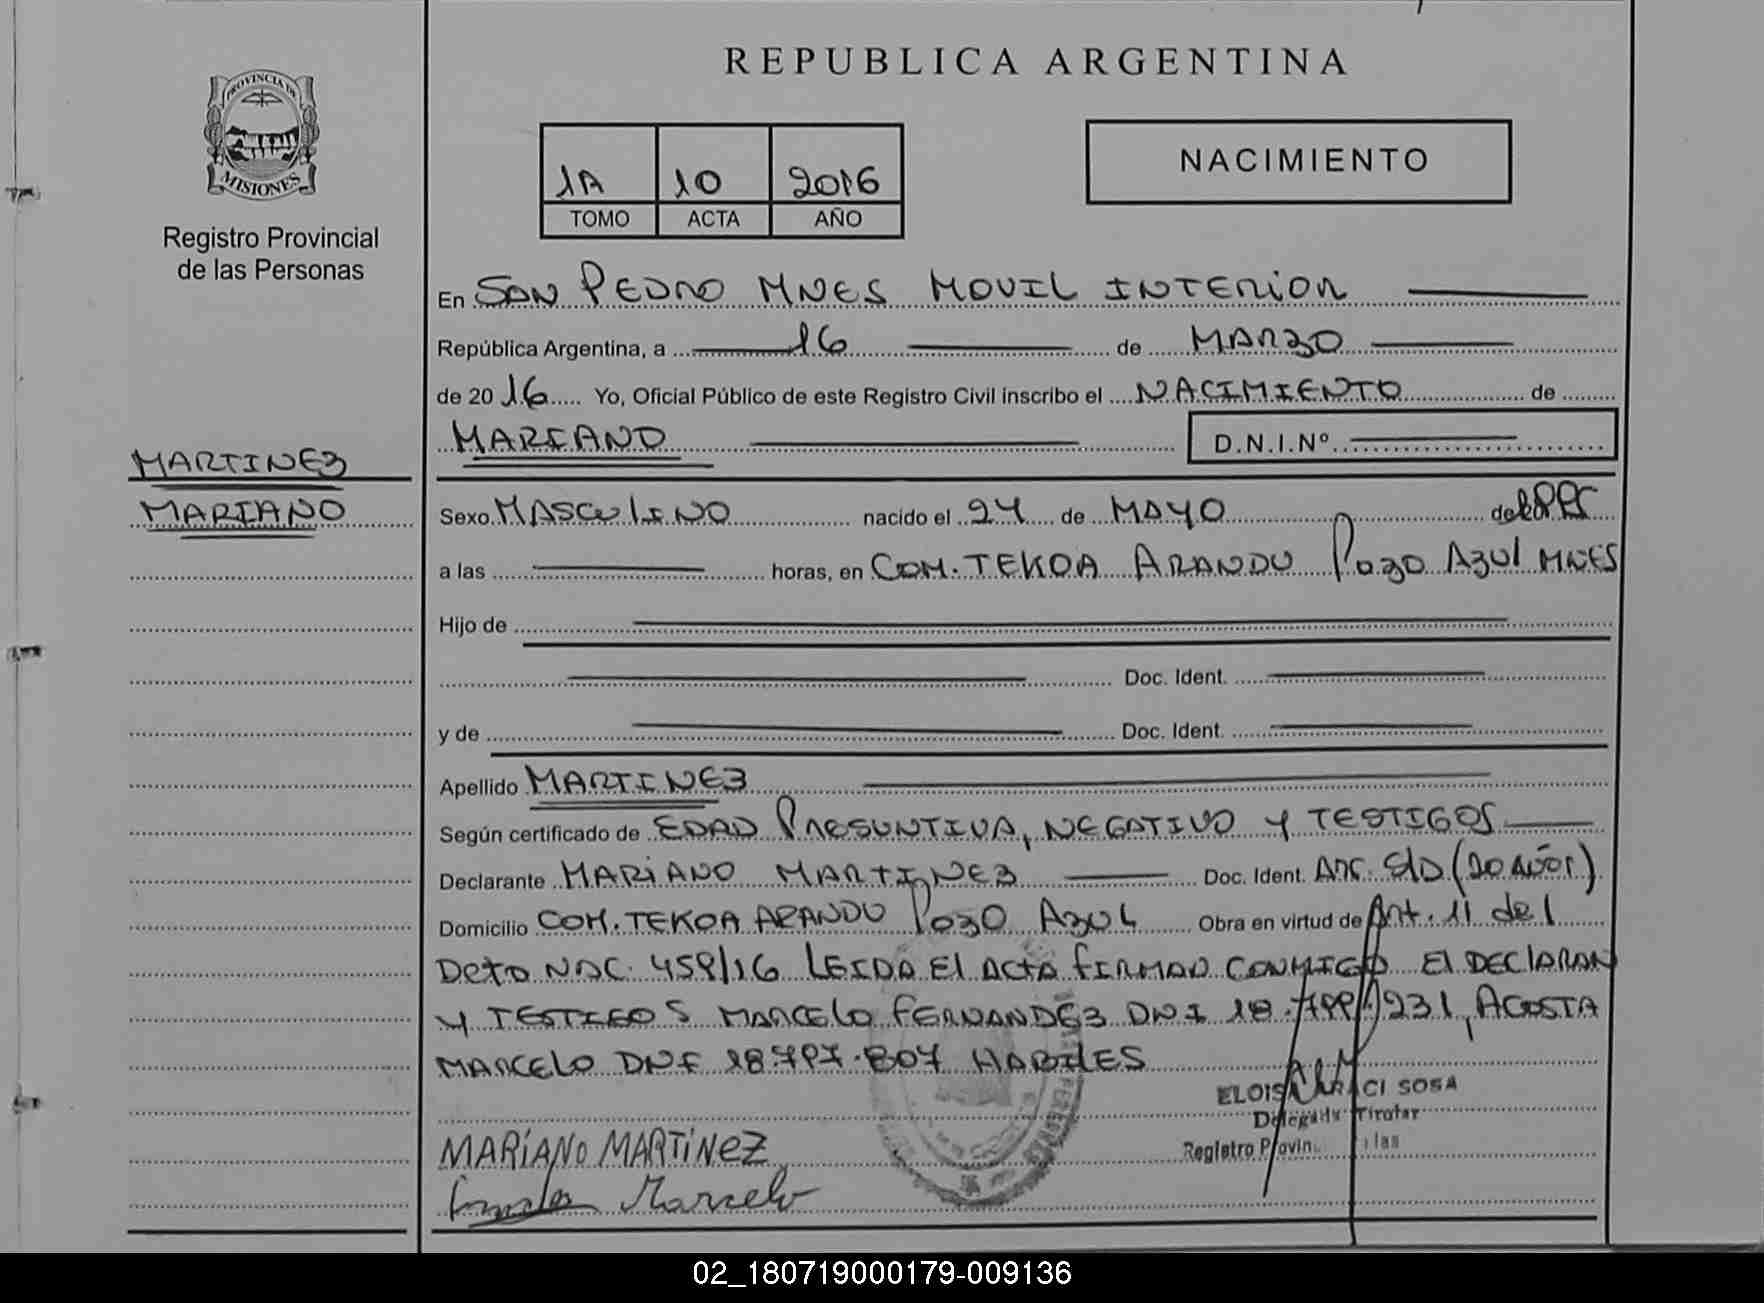 REPUBLICA ARGENTINA
PROVINCIA DE
MISIONES
Registro Provincial
de las Personas
1A 10 2016
TOMO ACTA AÑO
NACIMIENTO
En SAN PEDRO MNES MOVIL INTERIOR
República Argentina, a 16 de MARZO
de 2016 Yo, Oficial Público de este Registro Civil inscribo el NACIMIENTO de
MARIANO D.N.I.Nº
MARTINEZ
MARIANO
Sexo MASCULINO nacido el 24 de MAYO del
a las horas, en COM. TEKOA ARANDU POZO AZUL MNES
Hijo de
Doc. Ident.
y de Doc. Ident.
Apellido MARTINEZ
Según certificado de EDAD PRESUNTIVA, NEGATIVO Y TESTIGOS
Declarante MARIANO MARTINEZ Doc. Ident. ARG. S/D (20 AÑOS)
Domicilio COM. TEKOA ARANDU POZO AZUL Obra en virtud de Art. 11 del
Deto NAC. 459/16 LEIDA El ACTA FIRMAN CONMIGO El DECLARAN
Y TESTIGOS MARCELO FERNANDEZ DNI 18. 231, ACOSTA
MARCELO DNI 18.797.807 HABILES
ELOISA CI SOSA
Delegada Titular
Registro Provin. las
MARIANO MARTINEZ
Marcelo
02_180719000179-009136